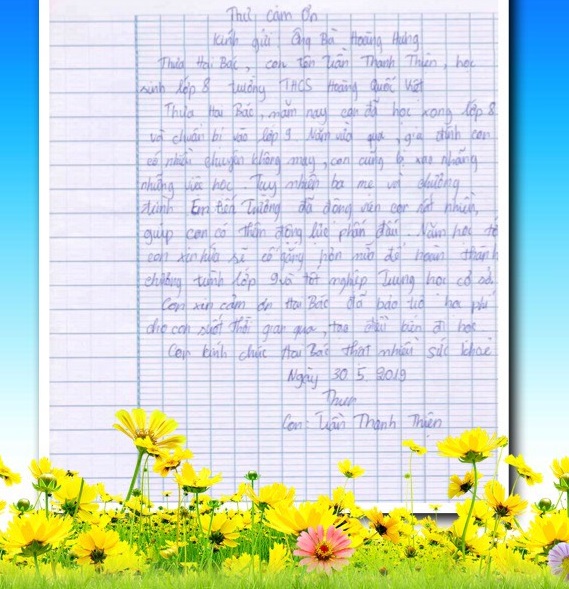 Thư cảm ơn
Kính gửi Ông Bà Hoàng Hưng
Thưa Hai Bác, con tên Trần Thanh Thiện, học
sinh lớp 8 trường THCS Hoàng Quốc Việt
Thưa Hai Bác, năm nay con đã học xong lớp 8
và chuẩn bị vào lớp 9. Năm vừa qua, gia đình con
có nhiều chuyện không may, con cũng bị xao nhãng
những việc học. Tuy nhiên ba mẹ và chương
trình Em Đến Trường đã động viên con rất nhiều,
giúp con có thêm động lực phấn đấu. Năm học tới
con xin hứa sẽ cố gắng hơn nữa để hoàn thành
chương trình lớp 9 và tốt nghiệp trung học cơ sở.
Con xin cảm ơn Hai Bác đã bảo trợ học phí
cho con suốt thời gian qua, tạo điều kiện đi học
Con kính chúc Hai Bác thật nhiều sức khoẻ
Ngày 30.5.2019
Thưa
Con: Trần Thanh Thiện